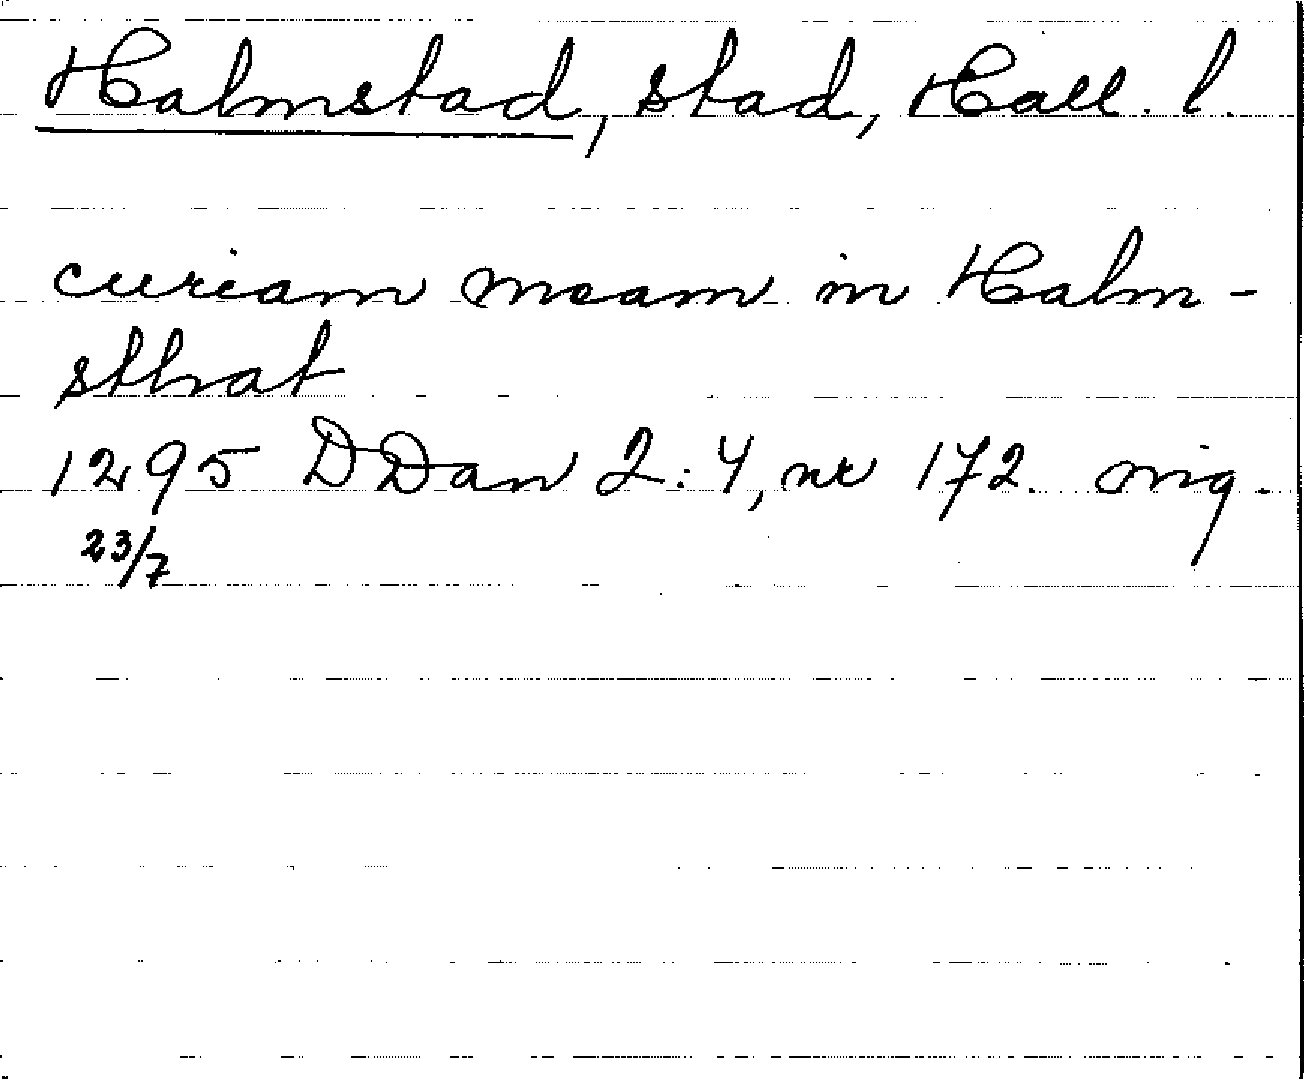 Halmstad, stad, Hall. l.
curiam meam in Halm-
sthat
1295 DDan 2:4, nr 172. orig.
23/7